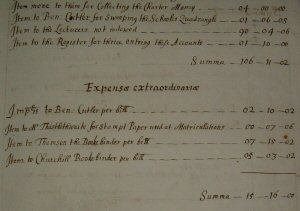 Item more to them for Collecting the Charter Money — 04 — 00 — 00
Item to Ben. Cutler for Sweeping the Schooles Quadrangle — 01 — 06 — 08
Item to the Lecturers not endowed — 90 — 04 — 06
Item to the Register for thrice entring these Accounts — 01 — 10 — 00
Summa — 106 — 11 — 02
Expensæ extraordinariæ
Imp^is to Ben. Cutler per bill — 02 — 10 — 02
Item to Mr. Thistlethwaite for Stampt Paper used at Matriculations — 00 — 07 — 06
Item to Thomson the Bookebinder per bill — 07 — 15 — 02
Item to Churchill Bookebinder per bill — 05 — 03 — 02
Summa — 15 — 16 — 00